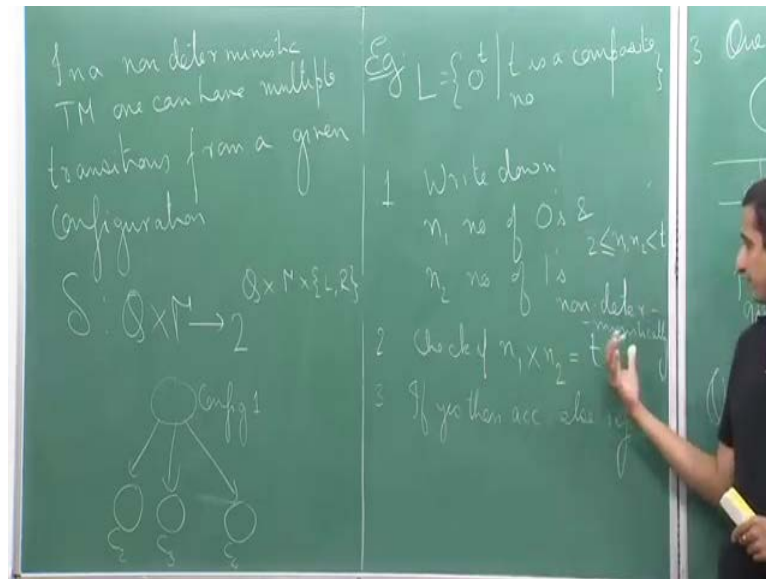 In a non deterministic
TM one can have multiple
transitions from a given
Configuration
δ : Q × Γ → 2^{Q × Γ × {L, R}}
Config 1
Eg: L = { 0^t | t is a composite }
no
1 Write down
n₁ no of 0's &
2 ≤ n₁, n₂ < t
n₂ no of 1's
non-deter-
-ministically
2 Check if n₁ × n₂ = t
3 If yes then acc else rej
3 Que